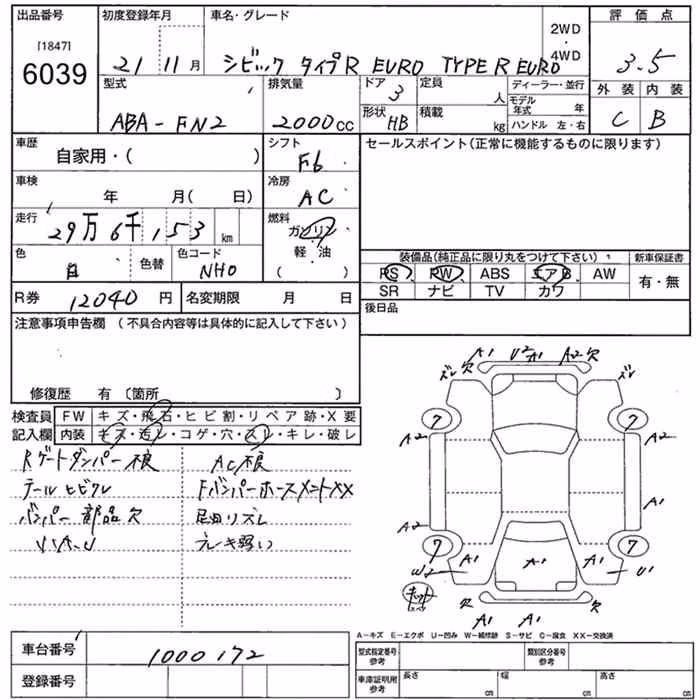 出品番号 初度登録年月 車名・グレード 2WD ・ 4WD 評価点
[1847]
6039 21 11月 シビック タイプR EURO TYPE R EURO 3.5
型式 排気量 ドア 3 定員 人 ディーラー・並行 外装 内装
ABA-FN2 2000cc 形状 HB 積載 kg モデル年式 年 ハンドル 左・右 C B
車歴 シフト セールスポイント(正常に機能するものに限ります)
自家用・( ) F6
車検 年 月( 日) 冷房 AC
走行 29万6千153 km 燃料 ガソリン
軽・油
( )
色 白 色替 色コード NH0
装備品(純正品に限り丸をつけて下さい) 新車保証書
PS PW ABS エアB AW 有・無
SR ナビ TV カワ
R券 12040円 名変期限 月 日 後日品
注意事項申告欄 (不具合内容等は具体的に記入して下さい)
修復歴 有〔箇所 〕
検査員 FW キズ・飛石・ヒビ割・リペア跡・X要
記入欄 内装 キズ・汚レ・コゲ・穴・スレ・キレ・破レ
Rゲートダンパー不良 AC不良
テールヒビワレ FバンパーホースメントXX
バンパー部品欠
ブレーキ弱い
ズレ 欠 A1 U2 A1 A2 欠 ズレ
7 7
A2 A2
A1
A2
7 7
W2 A1 A1 A1 U1
キット
スペア
欠 欠
A1 A1
A-キズ E-エクボ U-凹み W-補修跡 S-サビ C-腐食 XX-交換済
車台番号 1000172 型式指定番号 参考 類別区分番号 参考
登録番号 車庫証明用 参考 長さ cm 幅 cm 高さ cm